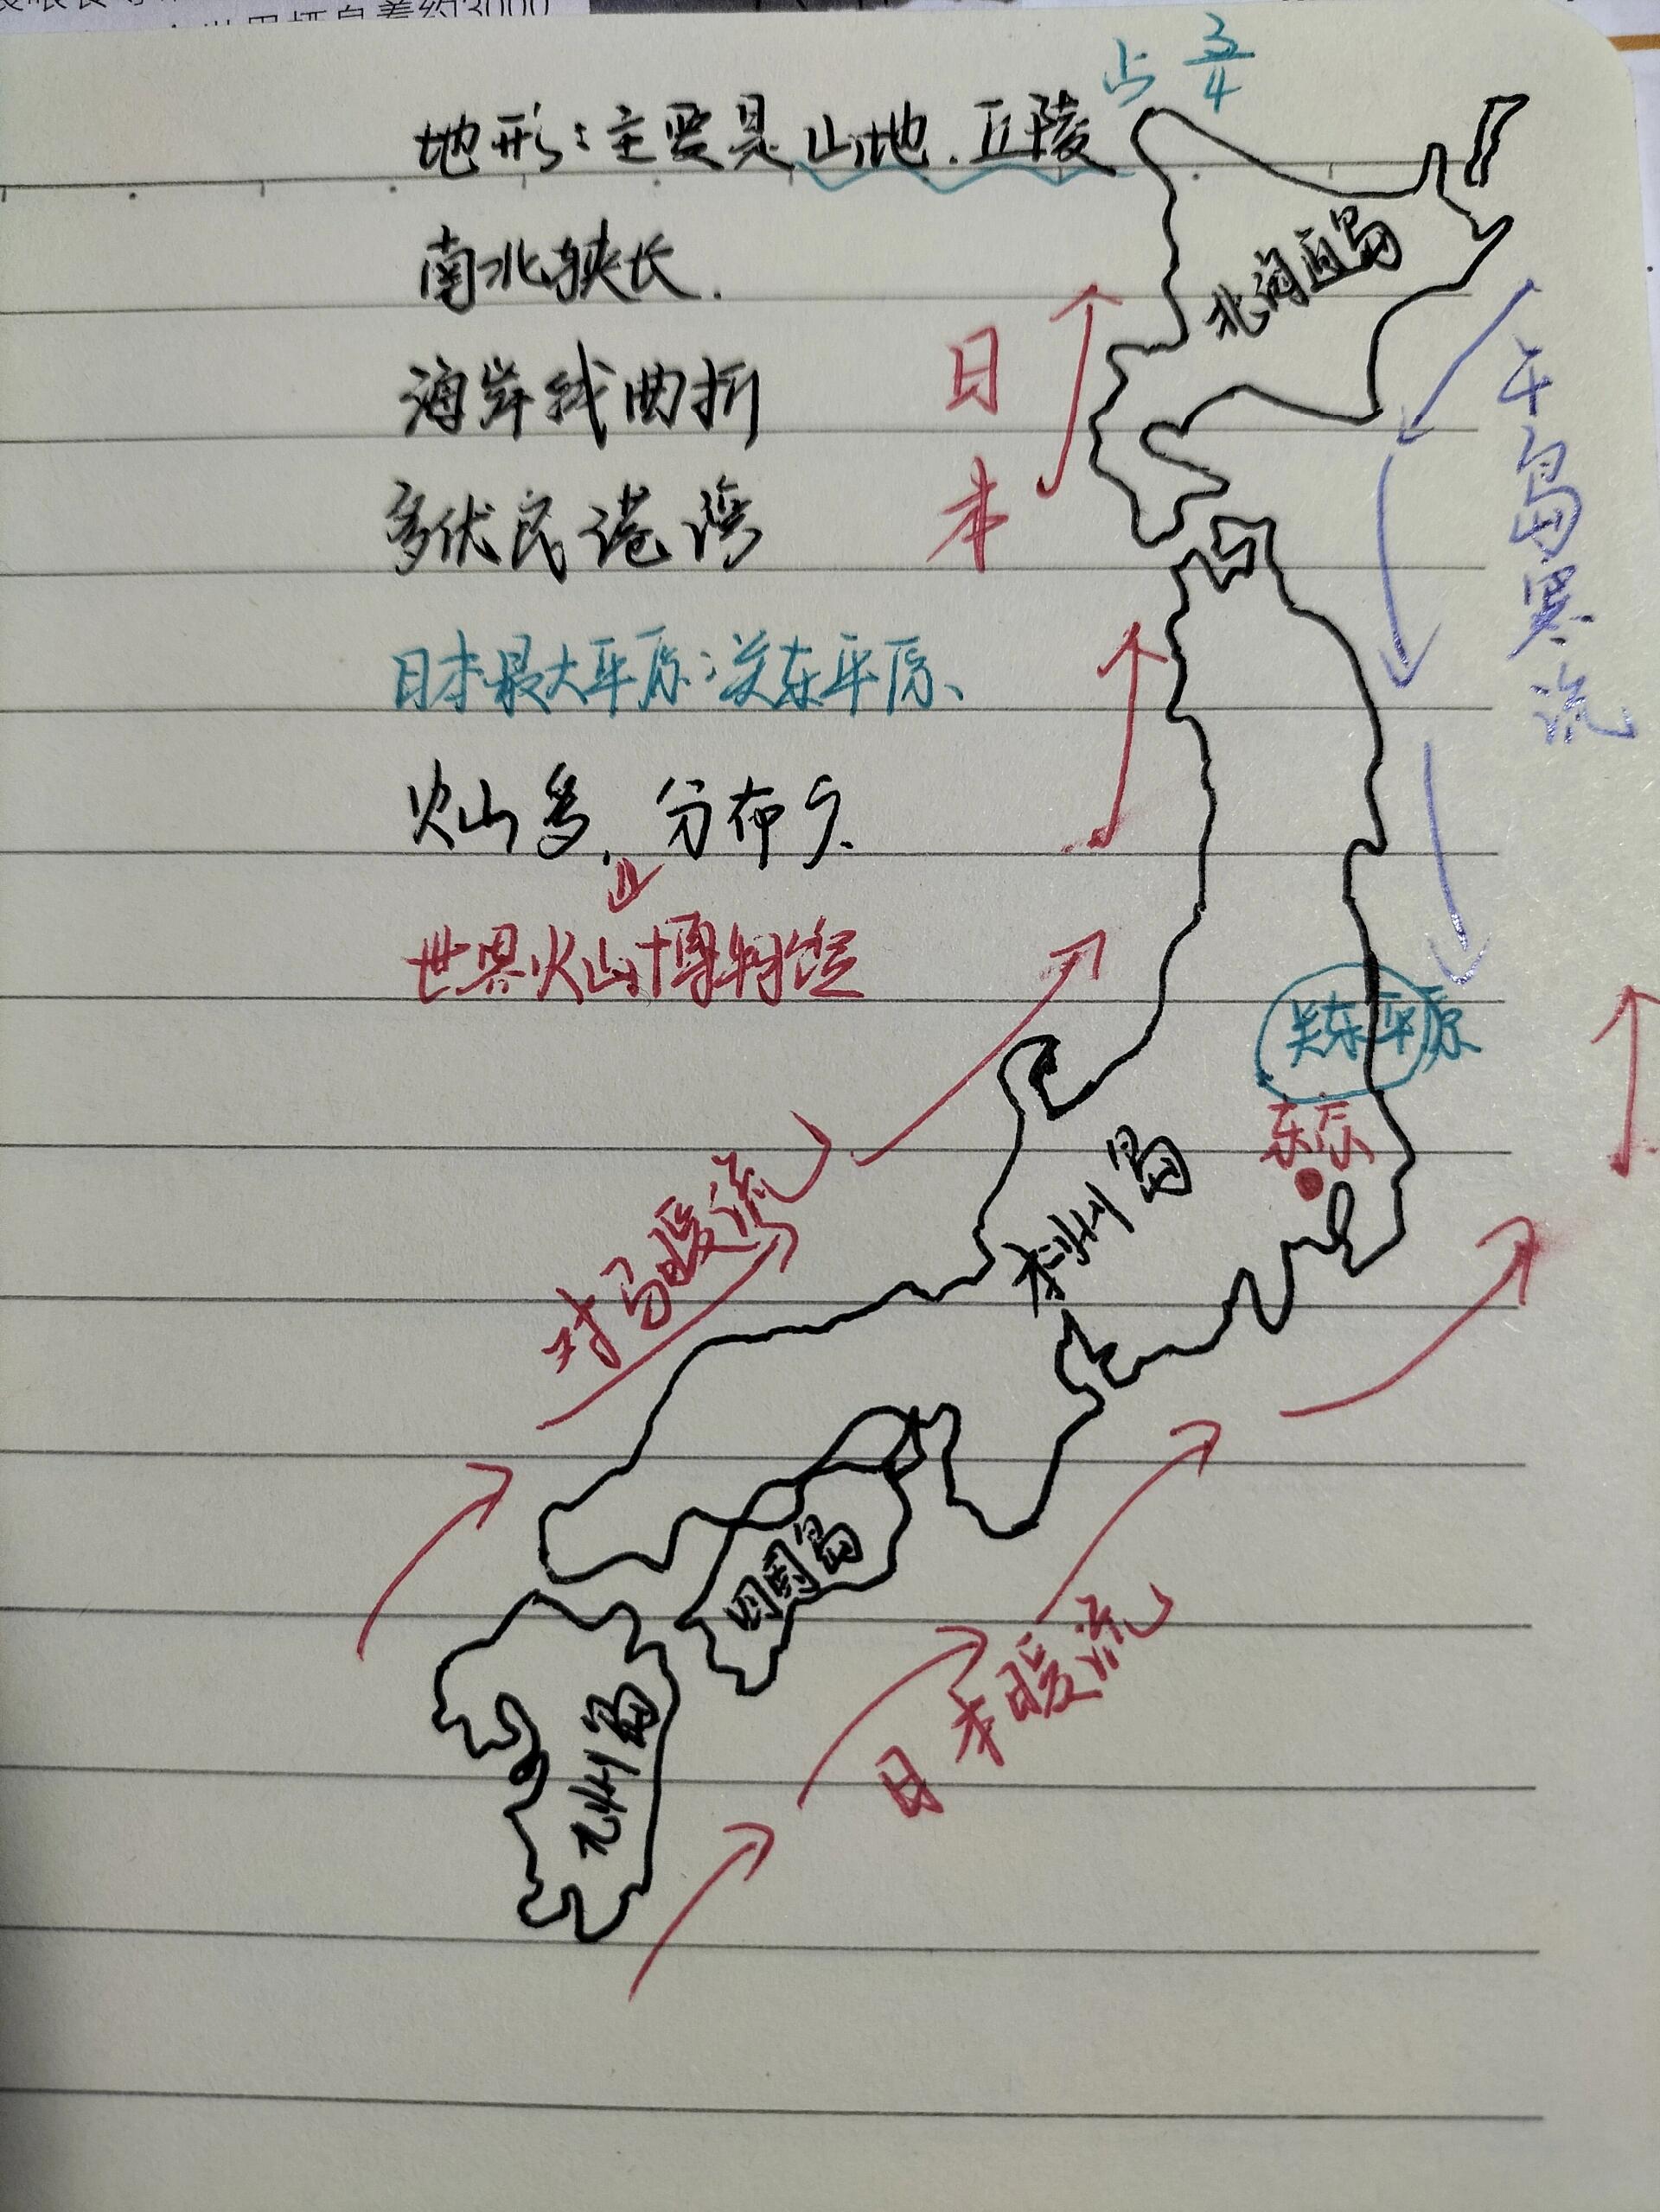 占 3/4
地形：主要是山地、丘陵
南北狭长.
海岸线曲折
多优良港湾
日本最大平原：关东平原、
火山多、分布广.
世界火山博物馆
日本
北海道岛
千岛寒流
关东平原
东京
本州岛
对马暖流
四国岛
九州岛
日本暖流